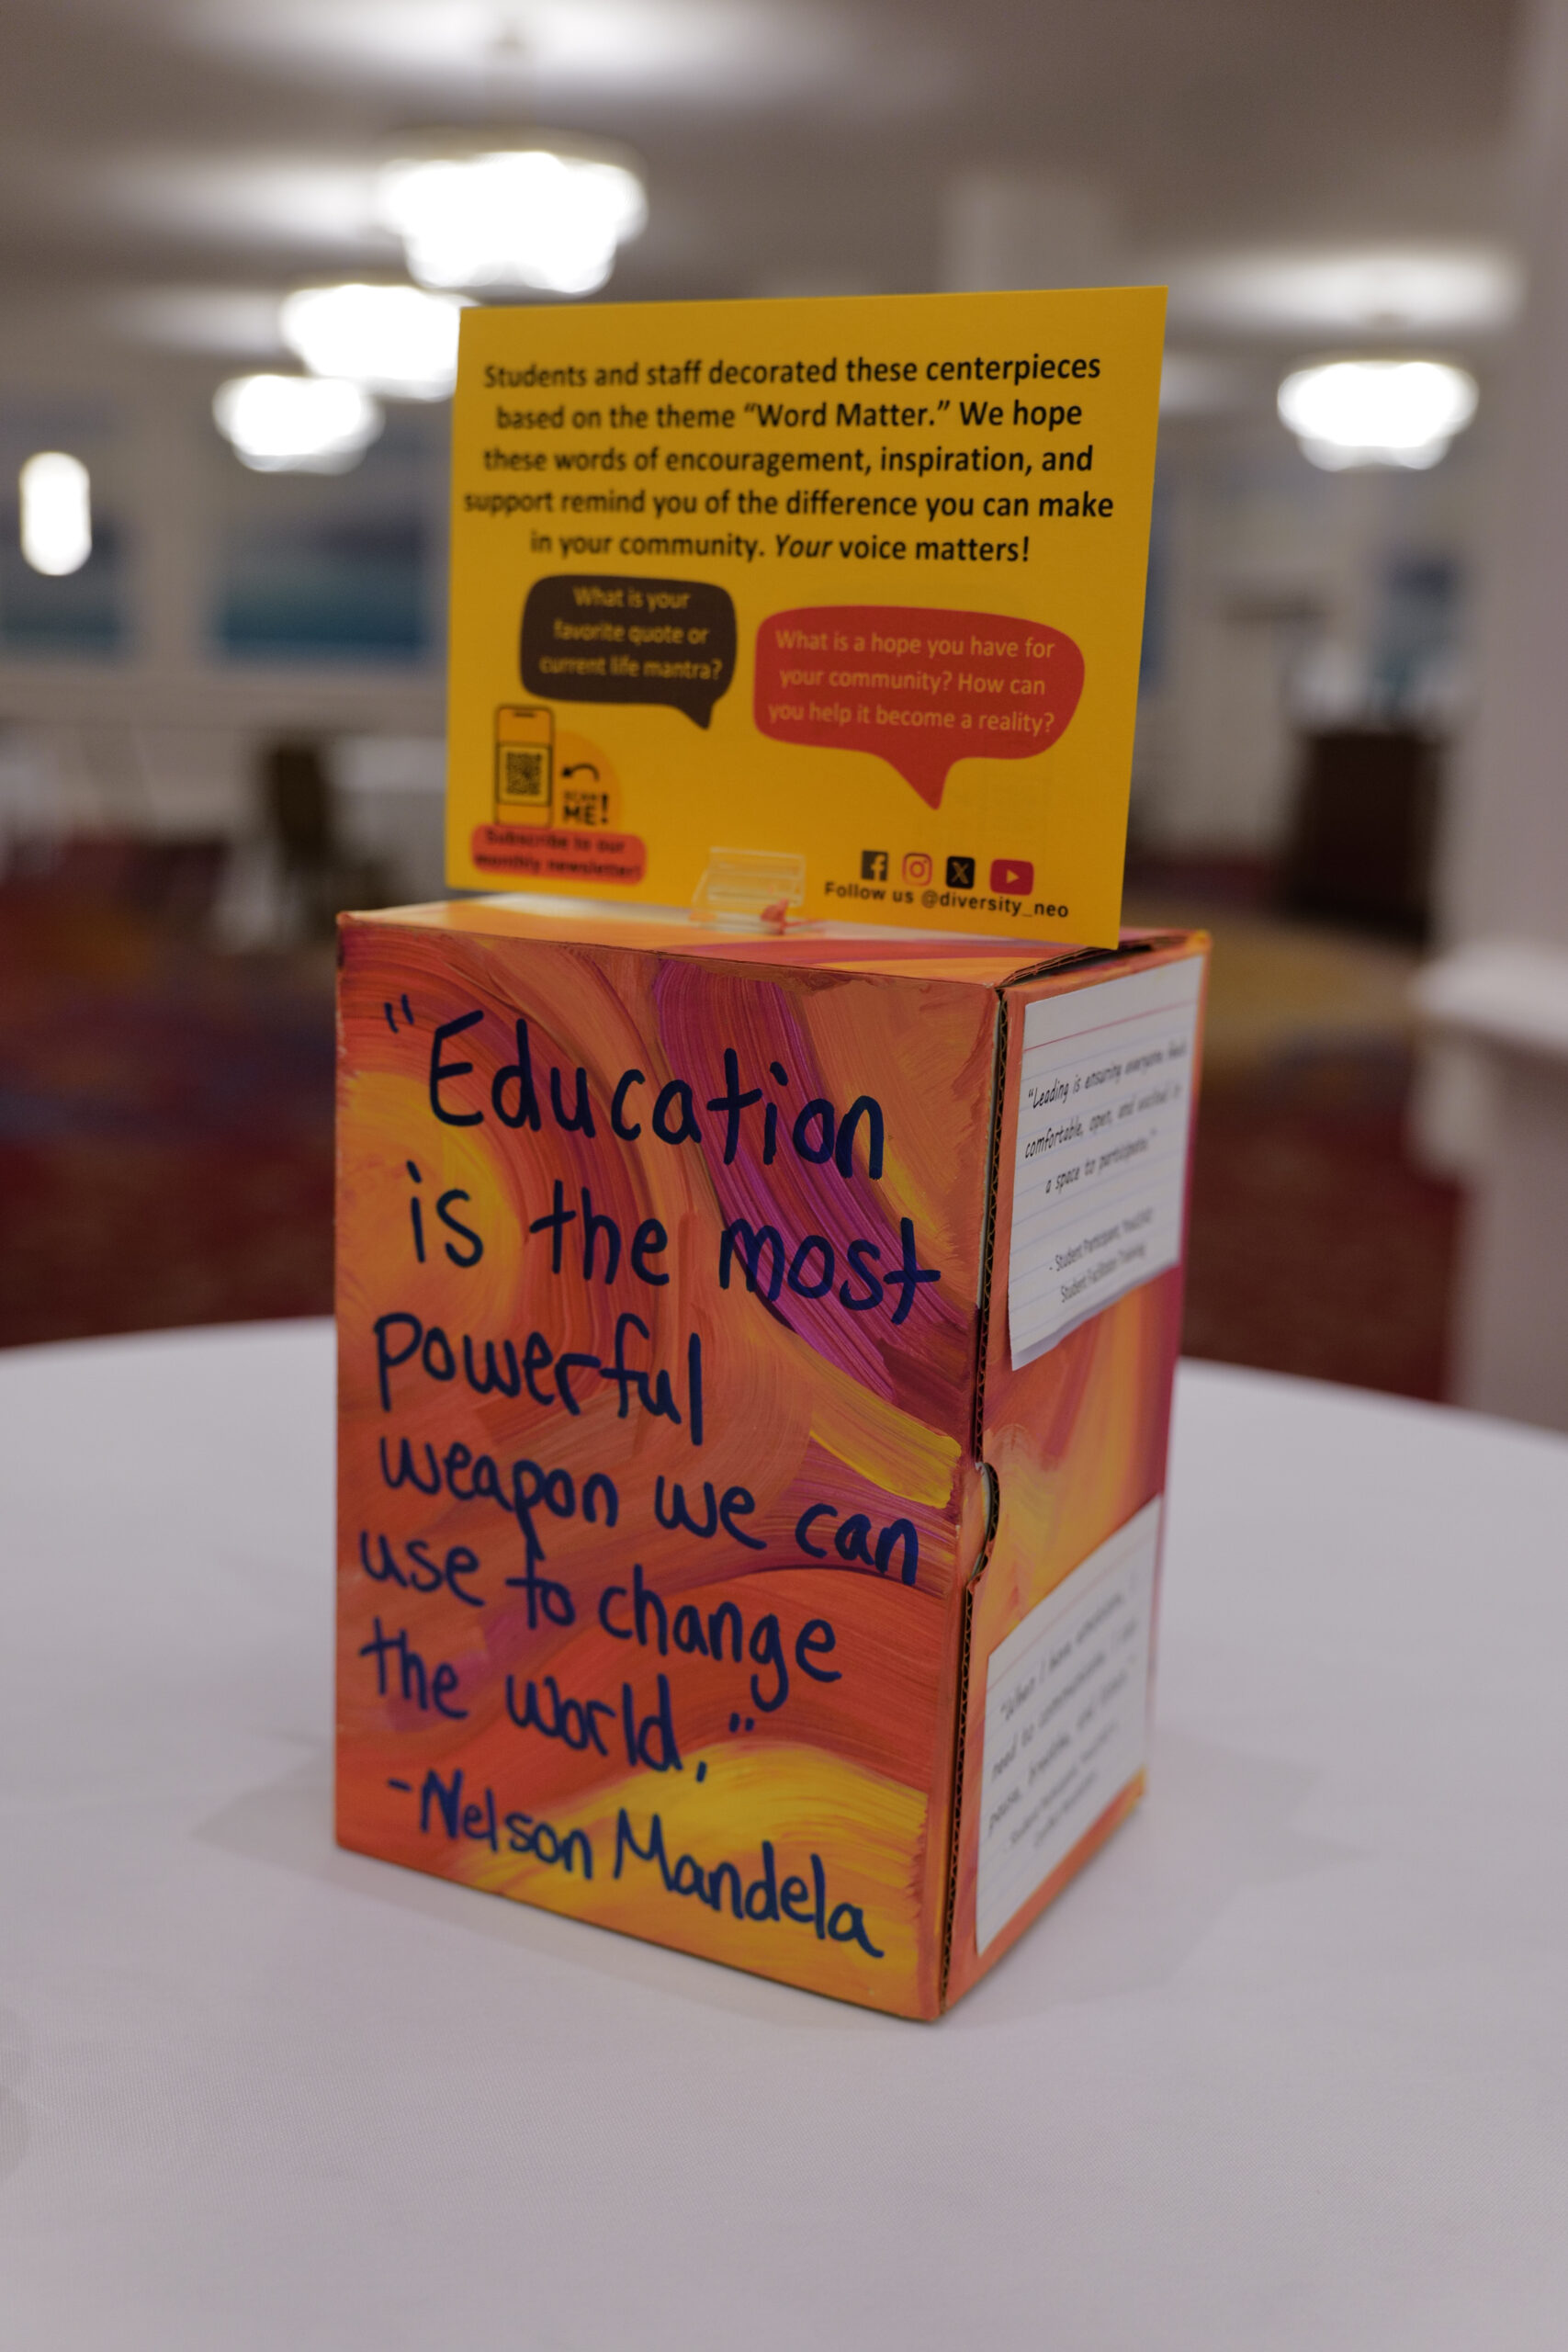 Students and staff decorated these centerpieces
based on the theme “Word Matter.” We hope
these words of encouragement, inspiration, and
support remind you of the difference you can make
in your community. Your voice matters!
What is your
favorite quote or
current life mantra?
What is a hope you have for
your community? How can
you help it become a reality?
SCAN
ME!
Subscribe to our
monthly newsletter!
Follow us @diversity_neo
"Education
is the most
powerful
weapon we can
use to change
the world,"
-Nelson Mandela
"Leading is ensuring everyone feels
comfortable, open, and welcomed to
a space to participate."
- Student Participant,
Student Facilitator Training
"When I have
need to communicate, I
pause, breathe, and